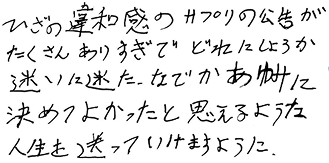 ひざの違和感のサプリの公告が
たくさんありすぎてどれにしようか
迷いに迷た。なでかあゆみに
決めてよかったと思えるような
人生を送っていけますように。